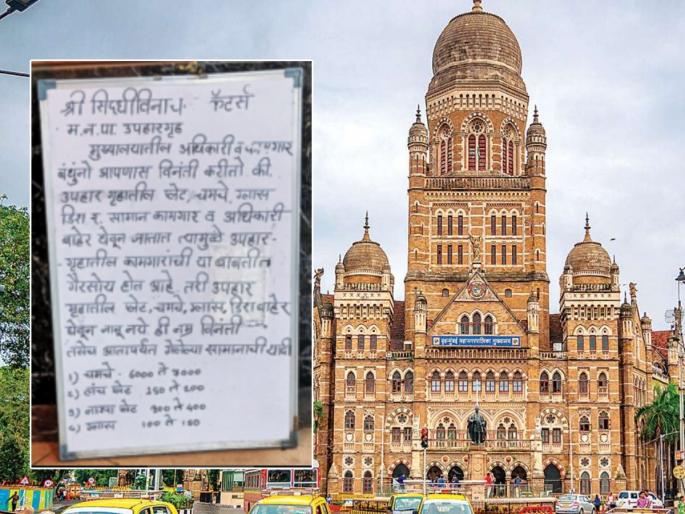 श्री सिध्धीविनायक कॅटर्स
म.न.पा. उपहारगृह
मुख्यालयातील अधिकारी व कामगार
बंधुंनो आपणास विनंती करीतो की
उपहार गृहातील प्लेट, चमचे, ग्लास
सामान कामगार व अधिकारी
बाहेर घेवून जातात त्यामुळे उपहार-
गृहातील कामगारांची या बाबतीत
गैरसोय होत आहे. तरी उपहार
गृहातील प्लेट, चमचे, ग्लास, बाहेर
घेवून जावू नये ही नम्र विनंती
तसेच आतापर्यंत गेलेल्या सामानाची यादी
१) चमचे - 6000 ते 7000
२) लंच प्लेट 150 ते 200
३) नाश्ता प्लेट 300 ते 400
४) ग्लास 100 ते 150
बृहन्मुंबई महानगरपालिका मुख्यालय